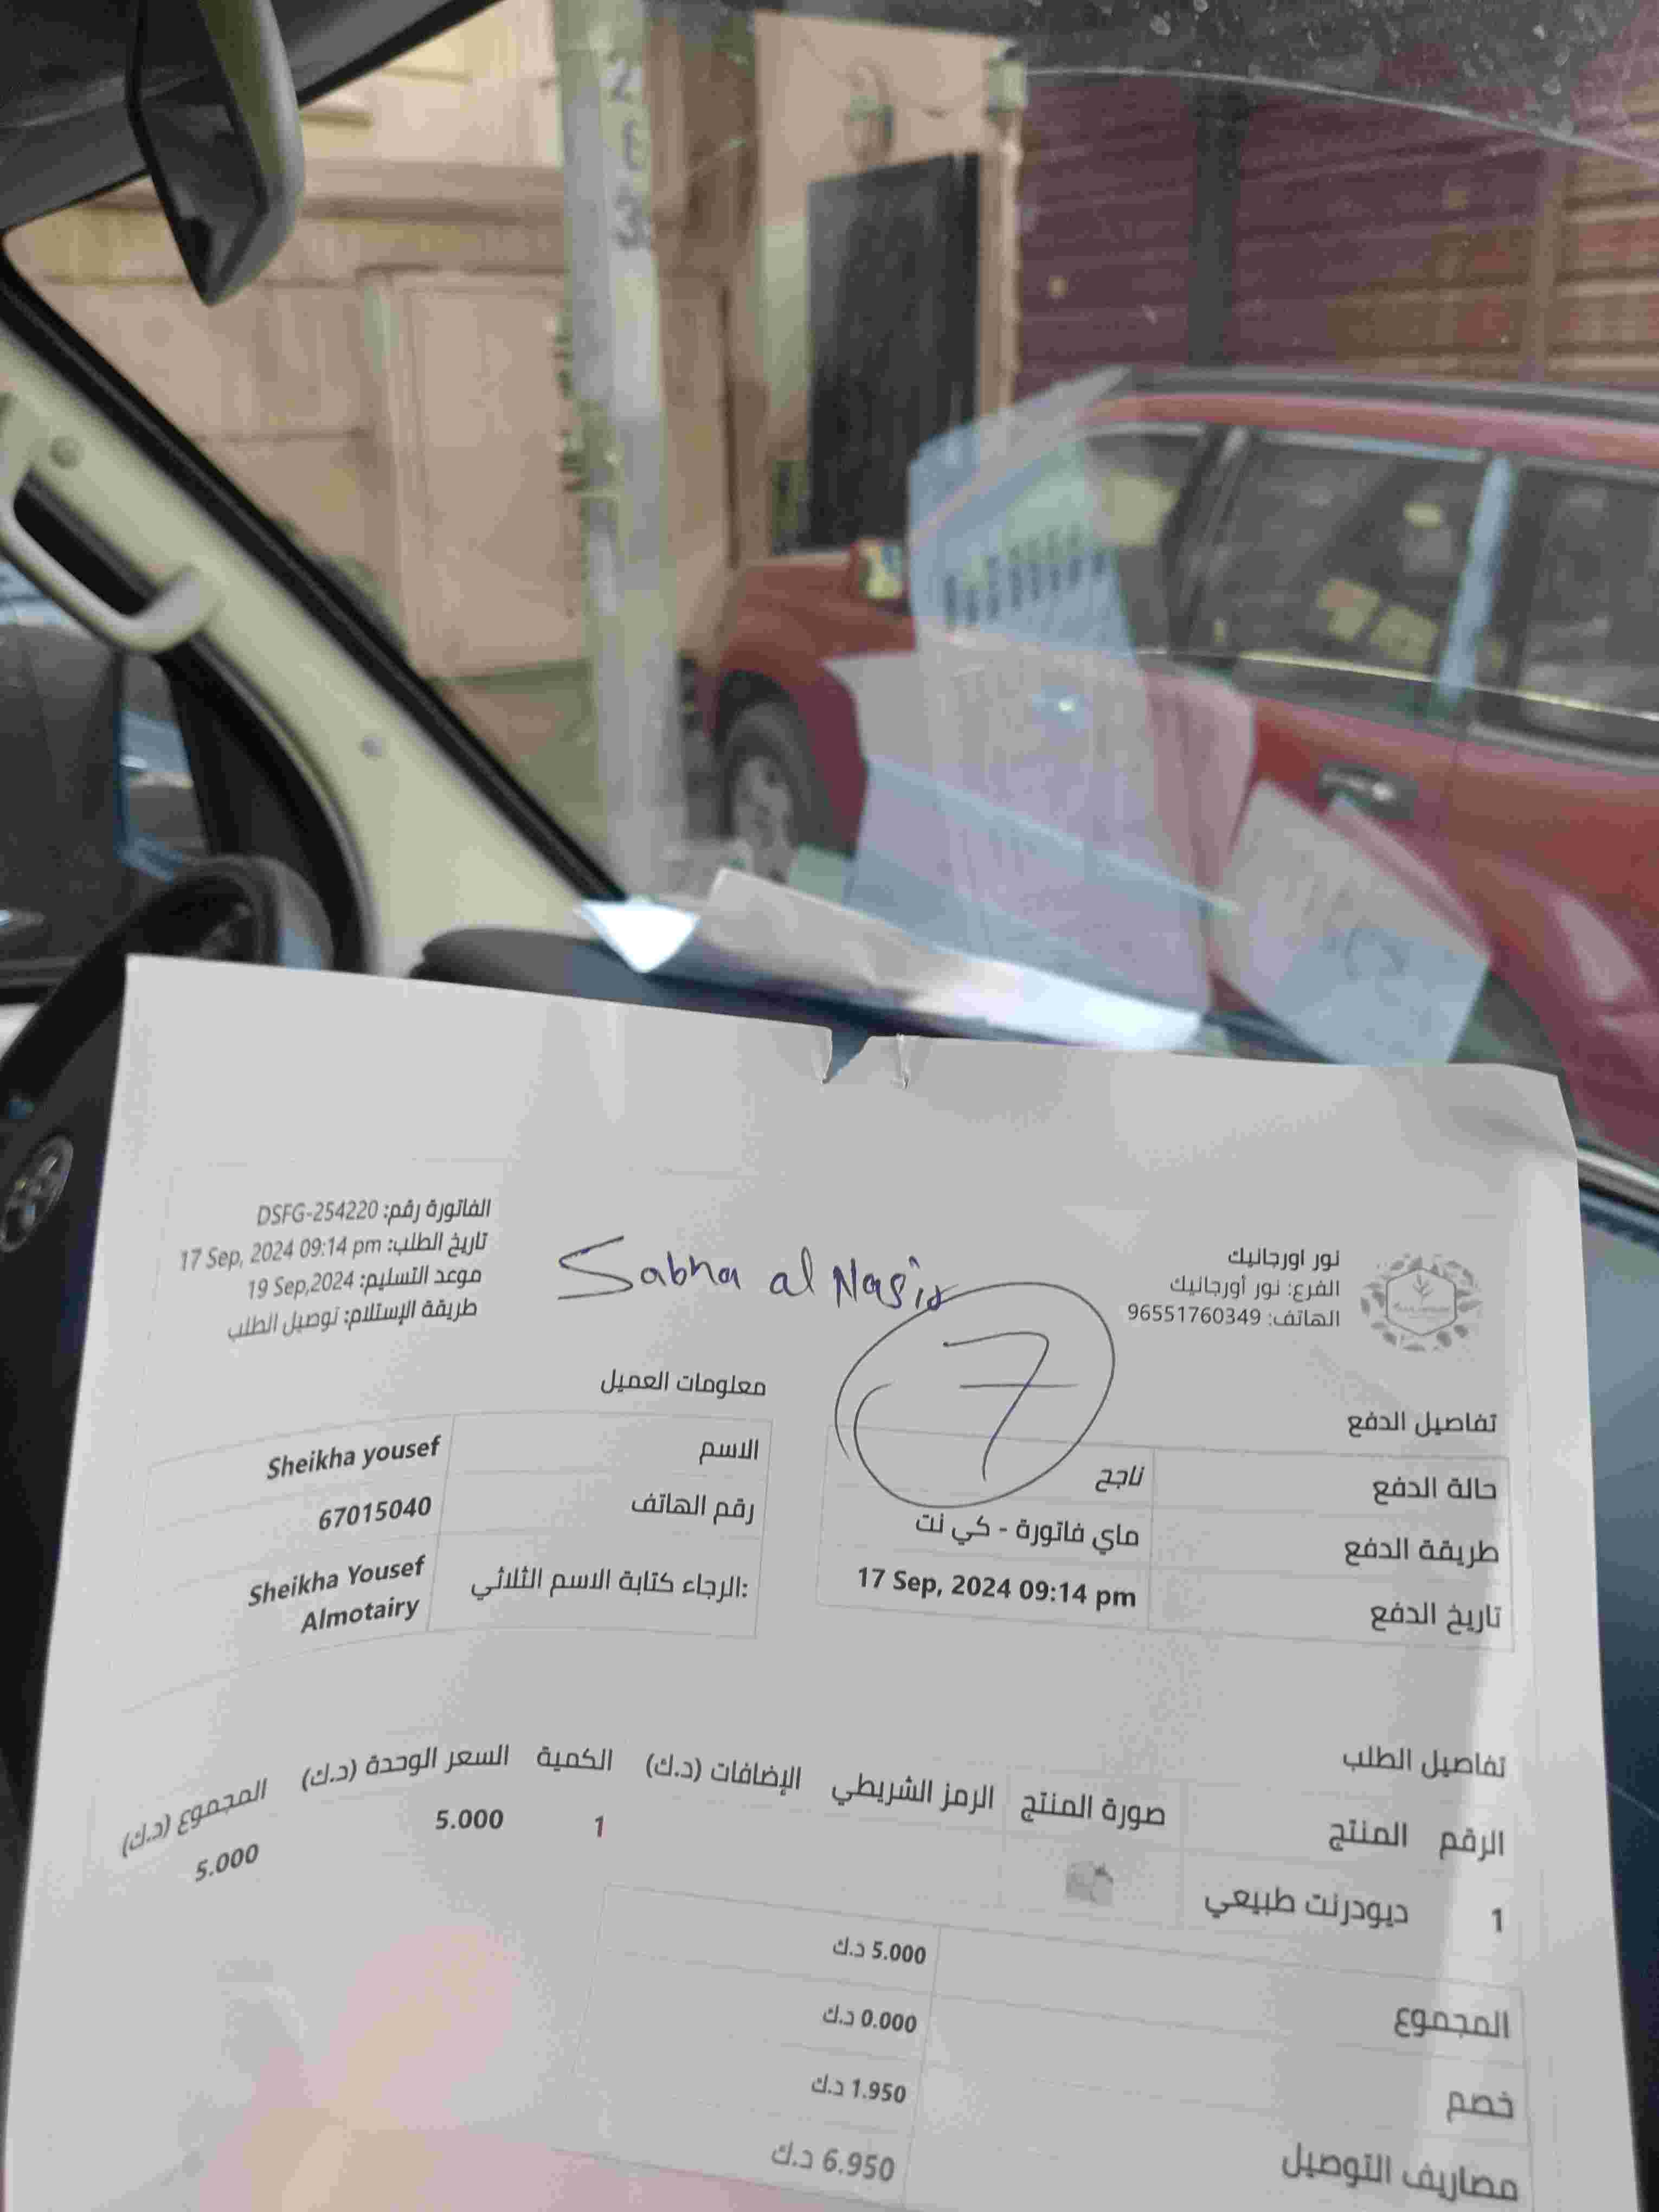 2
6
3
نور اورجانيك
الفرع: نور أورجانيك
الهاتف: 96551760349
Sabha al Nasir
7
الفاتورة رقم: DSFG-254220
تاريخ الطلب: 17 Sep, 2024 09:14 pm
موعد التسليم: 19 Sep,2024
طريقة الإستلام: توصيل الطلب
تفاصيل الدفع
حالة الدفع ناجح
طريقة الدفع ماي فاتورة - كي نت
تاريخ الدفع 17 Sep, 2024 09:14 pm
معلومات العميل
الاسم Sheikha yousef
رقم الهاتف 67015040
الرجاء كتابة الاسم الثلاثي: Sheikha Yousef
Almotairy
تفاصيل الطلب
الرقم المنتج صورة المنتج الرمز الشريطي الإضافات (د.ك) الكمية السعر الوحدة (د.ك) المجموع (د.ك)
1 ديودرنت طبيعي 1 5.000 5.000
المجموع 5.000 د.ك
خصم 0.000 د.ك
مصاريف التوصيل 1.950 د.ك
6.950 د.ك